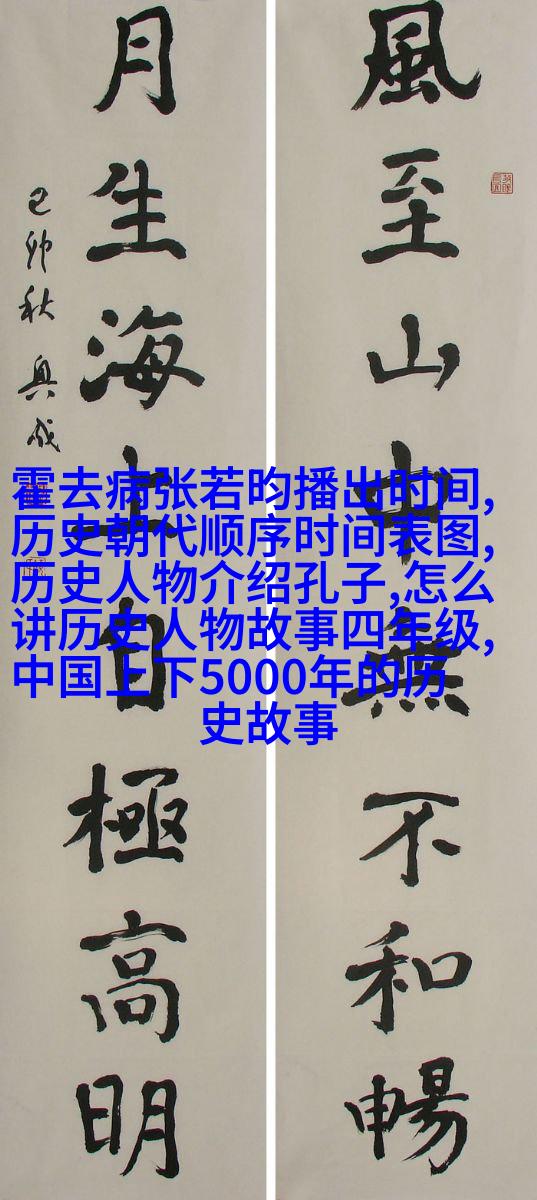 風至山中無不和暢
月生海上自極高明
己卯秋
霍去病张若昀播出时间,
历史朝代顺序时间表图,
历史人物介绍孔子,怎么
讲历史人物故事四年级,
中国上下5000年的历
史故事